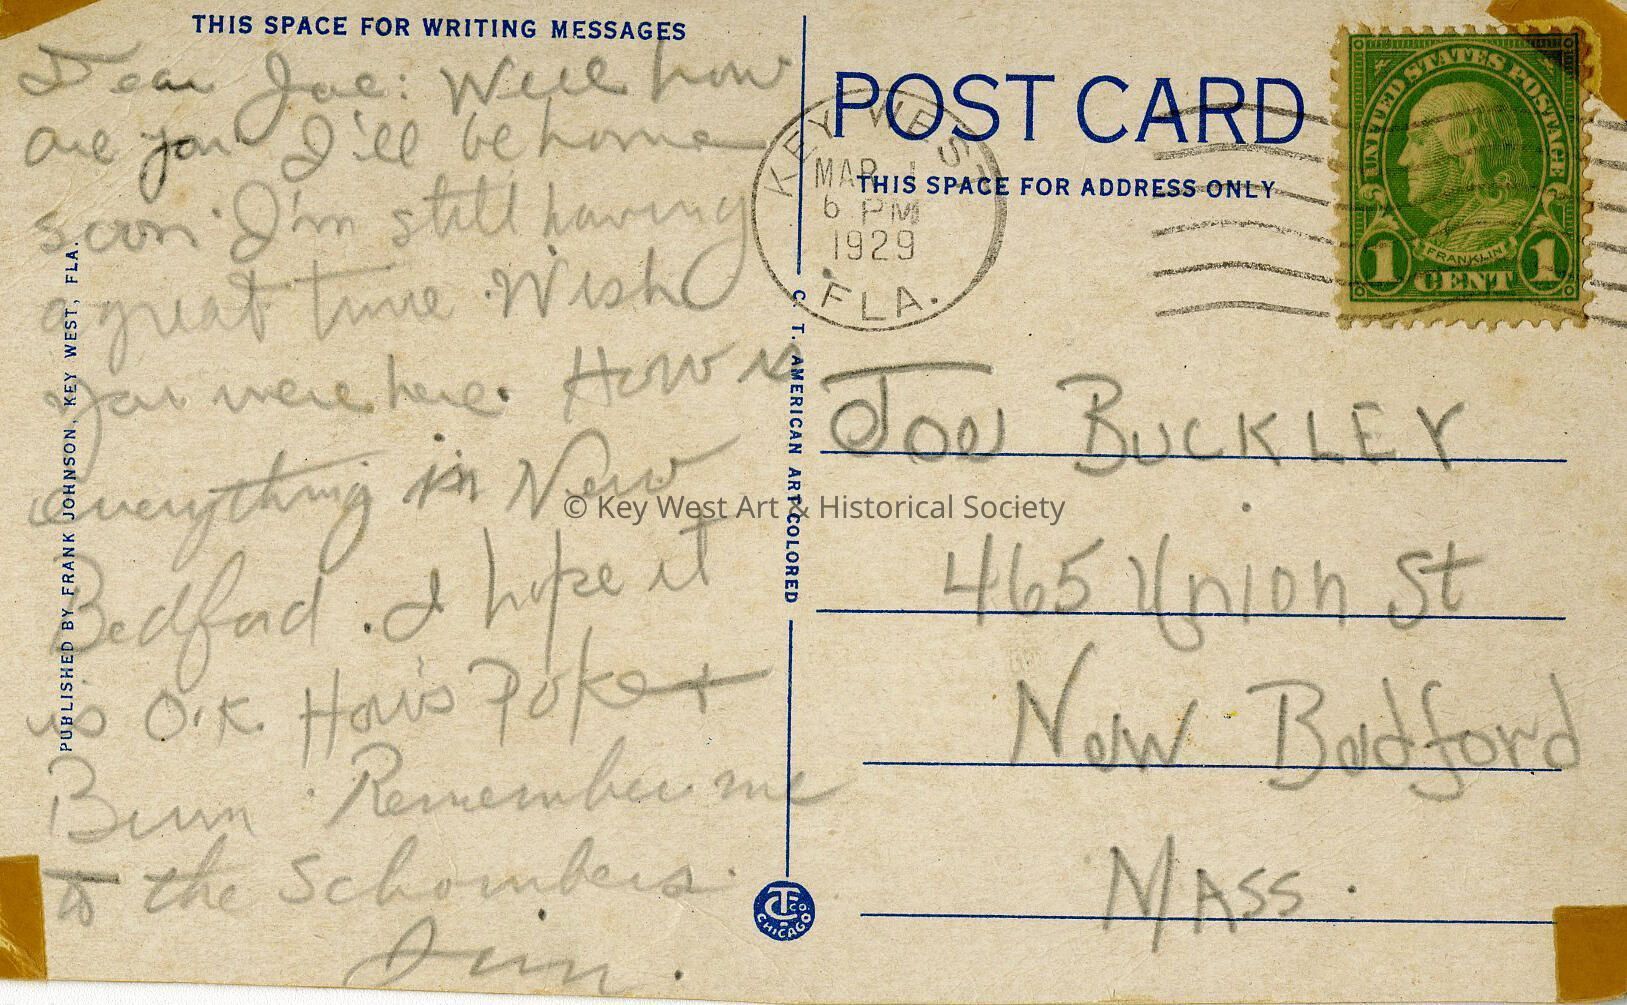 THIS SPACE FOR WRITING MESSAGES
Dear Joe: Well how
are you I'll be home
soon. I'm still having
a great time. Wish
you were here. How is
everything in New
Bedford. I hope it
is O.K. How's Poker
Bum. Remember me
to the Schombers.
Jim.
PUBLISHED BY FRANK JOHNSON, KEY WEST, FLA.
C. T. AMERICAN ART COLORED
POST CARD
THIS SPACE FOR ADDRESS ONLY
KEY WEST
MAR 1
6 PM
1929
FLA.
UNITED STATES POSTAGE
FRANKLIN
1 CENT 1
JOE BUCKLEY
465 Union St
New Bedford
MASS.
CT CO. CHICAGO
© Key West Art & Historical Society